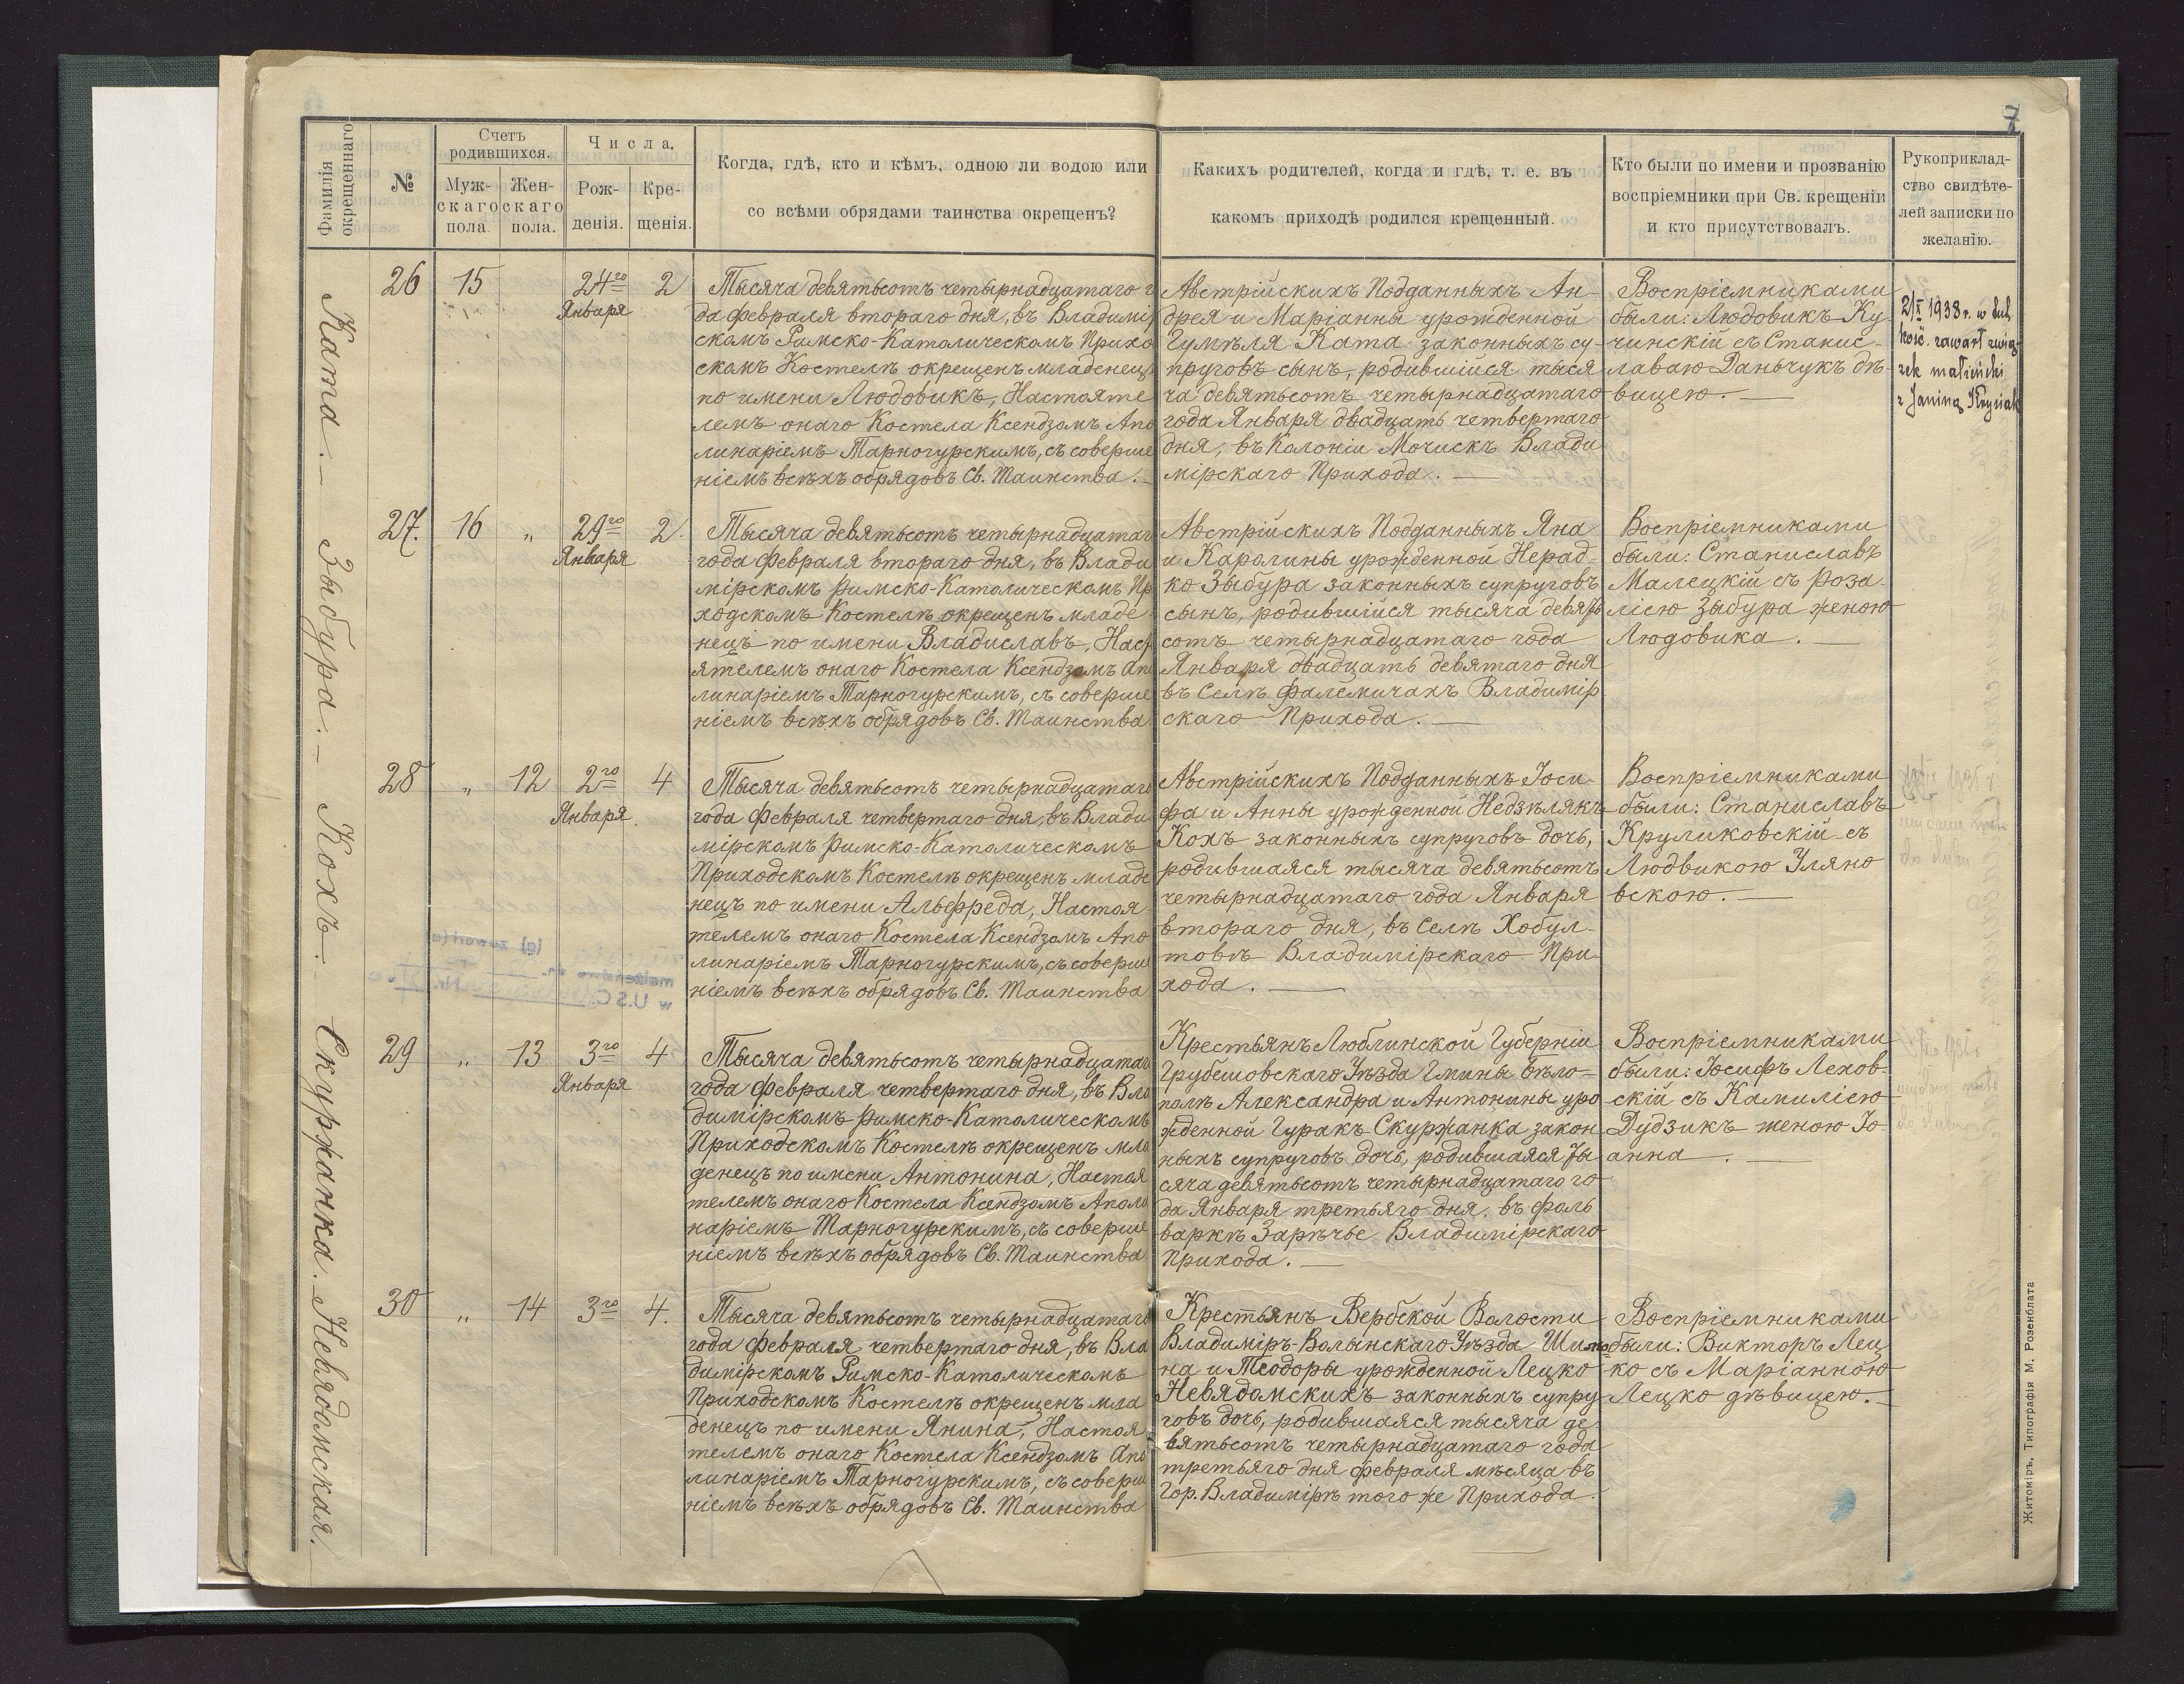 7
Фамилія окрещеннаго
№
Счетъ родившихся.
Мужскаго пола.
Женскаго пола.
Числа.
Рожденія.
Крещенія.
Когда, гдѣ, кто и кѣмъ, одною ли водою или
со всѣми обрядами таинства окрещенъ?
Какихъ родителей, когда и гдѣ, т. е. въ
какомъ приходѣ родился крещенный.
Кто были по имени и прозванію
воспріемники при Св. крещеніи
и кто присутствовалъ.
Рукоприклад-
ство свидѣте-
лей записки по
желанію.
Ката.
26 15 24го Января 2
Тысяча девятьсотъ четырнадцатаго г
да февраля втораго дня, въ Владимір
скомъ Римско-Католическомъ Прихо
скомъ Костелѣ окрещенъ младенецъ
по имени Людовикъ, Настояте
лемъ онаго Костела Ксендзомъ Апо
линаріемъ Тарногурскимъ, съ соверше
ніемъ всѣхъ обрядовъ Св. Таинства.
Австрійскихъ Подданныхъ Ан-
дрея и Маріанны урожденной
Гумѣля Ката законныхъ су-
пруговъ сынъ, родившійся тыся
ча девятьсотъ четырнадцатаго
года Января двадцать четвертаго
дня, въ Колоніи Мочискъ Влади
мірскаго Прихода.
Воспріемниками
были: Людовикъ Ку-
чинскій съ Станис-
лаваю Даньчукъ дѣ-
вицею.
2/X 1938 r. w tut.
kość. zawarł zwią-
zek małżeński
z Janiną Krysiak
Зыбура.
27. 16 „ 29го Января 2.
Тысяча девятьсотъ четырнадцатаг
года февраля втораго дня, въ Влади
мірскомъ Римско-Католическомъ Пр
ходскомъ Костелѣ окрещенъ младе
нецъ по имени Владиславъ, Наст
ятелемъ онаго Костела Ксендзомъ Апо
линаріемъ Тарногурскимъ, съ соверше
ніемъ всѣхъ обрядовъ Св. Таинства
Австрійскихъ Подданныхъ Яна
и Каролины урожденной Нерад-
ко Зыбура законныхъ супруговъ
сынъ, родившійся тысяча девять
сотъ четырнадцатаго года
Января двадцать девятаго дня
въ Селѣ Фалемичахъ Владимір
скаго Прихода.
Воспріемниками
были: Станиславъ
Малецкій съ Роза-
ліею Зыбура женою
Людовика.
Кохъ.
28 „ 12 2го Января. 4
Тысяча девятьсотъ четырнадцатаго
года февраля четвертаго дня, въ Влади
мірскомъ Римско-Католическомъ
Приходскомъ Костелѣ окрещенъ младе
нецъ по имени Альфреда, Настоя
телемъ онаго Костела Ксендзомъ Апо
линаріемъ Тарногурскимъ, съ соверше
ніемъ всѣхъ обрядовъ Св. Таинства
Австрійскихъ Подданныхъ Іоси-
фа и Анны урожденной Недзѣлякъ
Кохъ законныхъ супруговъ дочь,
родившаяся тысяча девятьсотъ
четырнадцатаго года Января
втораго дня, въ Селѣ Хобул-
товѣ Владимірскаго При-
хода.
Воспріемниками
были: Станиславъ
Круликовскій съ
Людвикою Уляно
вскою.
Скуржанка.
29 „ 13 3го Января 4
Тысяча девятьсотъ четырнадцатаго
года февраля четвертаго дня, въ Вла
димірскомъ Римско-Католическомъ
Приходскомъ Костелѣ окрещенъ мла
денецъ по имени Антонина, Настоя
телемъ онаго Костела Ксендзомъ Аполи
наріемъ Тарногурскимъ, съ соверше
ніемъ всѣхъ обрядовъ Св. Таинства
Крестьянъ Люблинской Губерніи
Грубешовскаго Уѣзда Гмины Бѣло-
полѣ Александра и Антонины уро
жденной Гуракъ Скуржанка закон
ныхъ супруговъ дочь, родившаяся ты
сяча девятьсотъ четырнадцатаго го
да Января третьяго дня, въ фоль
варкѣ Зарѣчье Владимірскаго
Прихода.
Воспріемниками
были: Іосифъ Лехов-
скій съ Камиліею
Дудзикъ женою Іо-
анна.
Невядомская.
30 „ 14 3го 4.
Тысяча девятьсотъ четырнадцатаго
года февраля четвертаго дня, въ Вла
димірскомъ Римско-Католическомъ
Приходскомъ Костелѣ окрещенъ мла
денецъ по имени Янина, Настоя
телемъ онаго Костела Ксендзомъ Апо
линаріемъ Тарногурскимъ, съ соверше
ніемъ всѣхъ обрядовъ Св. Таинства
Крестьянъ Вербской Волости
Владиміръ-Волынскаго Уѣзда Шимо
на и Теодоры урожденной Лецко
Невядомскихъ законныхъ супру
говъ дочь, родившаяся тысяча де
вятьсотъ четырнадцатаго года
третьяго дня февраля мѣсяца въ
Гор. Владимірѣ того же Прихода.
Воспріемниками
были: Викторъ Лец
ко съ Маріанною
Лецко дѣвицею.
Житоміръ, Типографія М. Розенблата